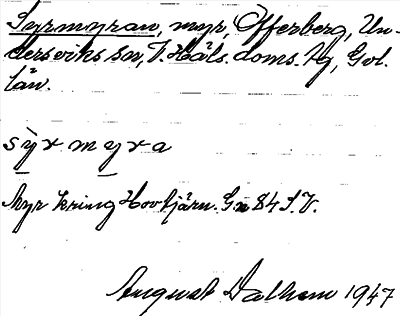 Syrmyran, myr, Offerberg, Un-
dersviks sn, V. Häls. doms. hg, Gvl.
län.
syrmyra
Myr kring Hovtjärn. Gn 84 S.V.
August Dalhem 1947